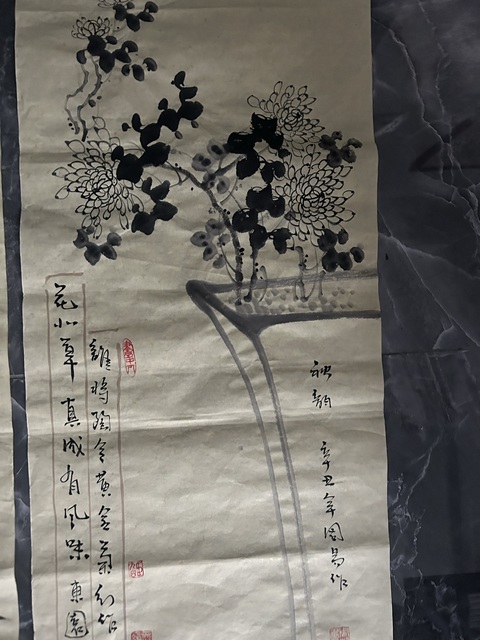 秋韻
辛丑年國易作
誰將陶令黄金菊幻作
花小草真成有风味東園